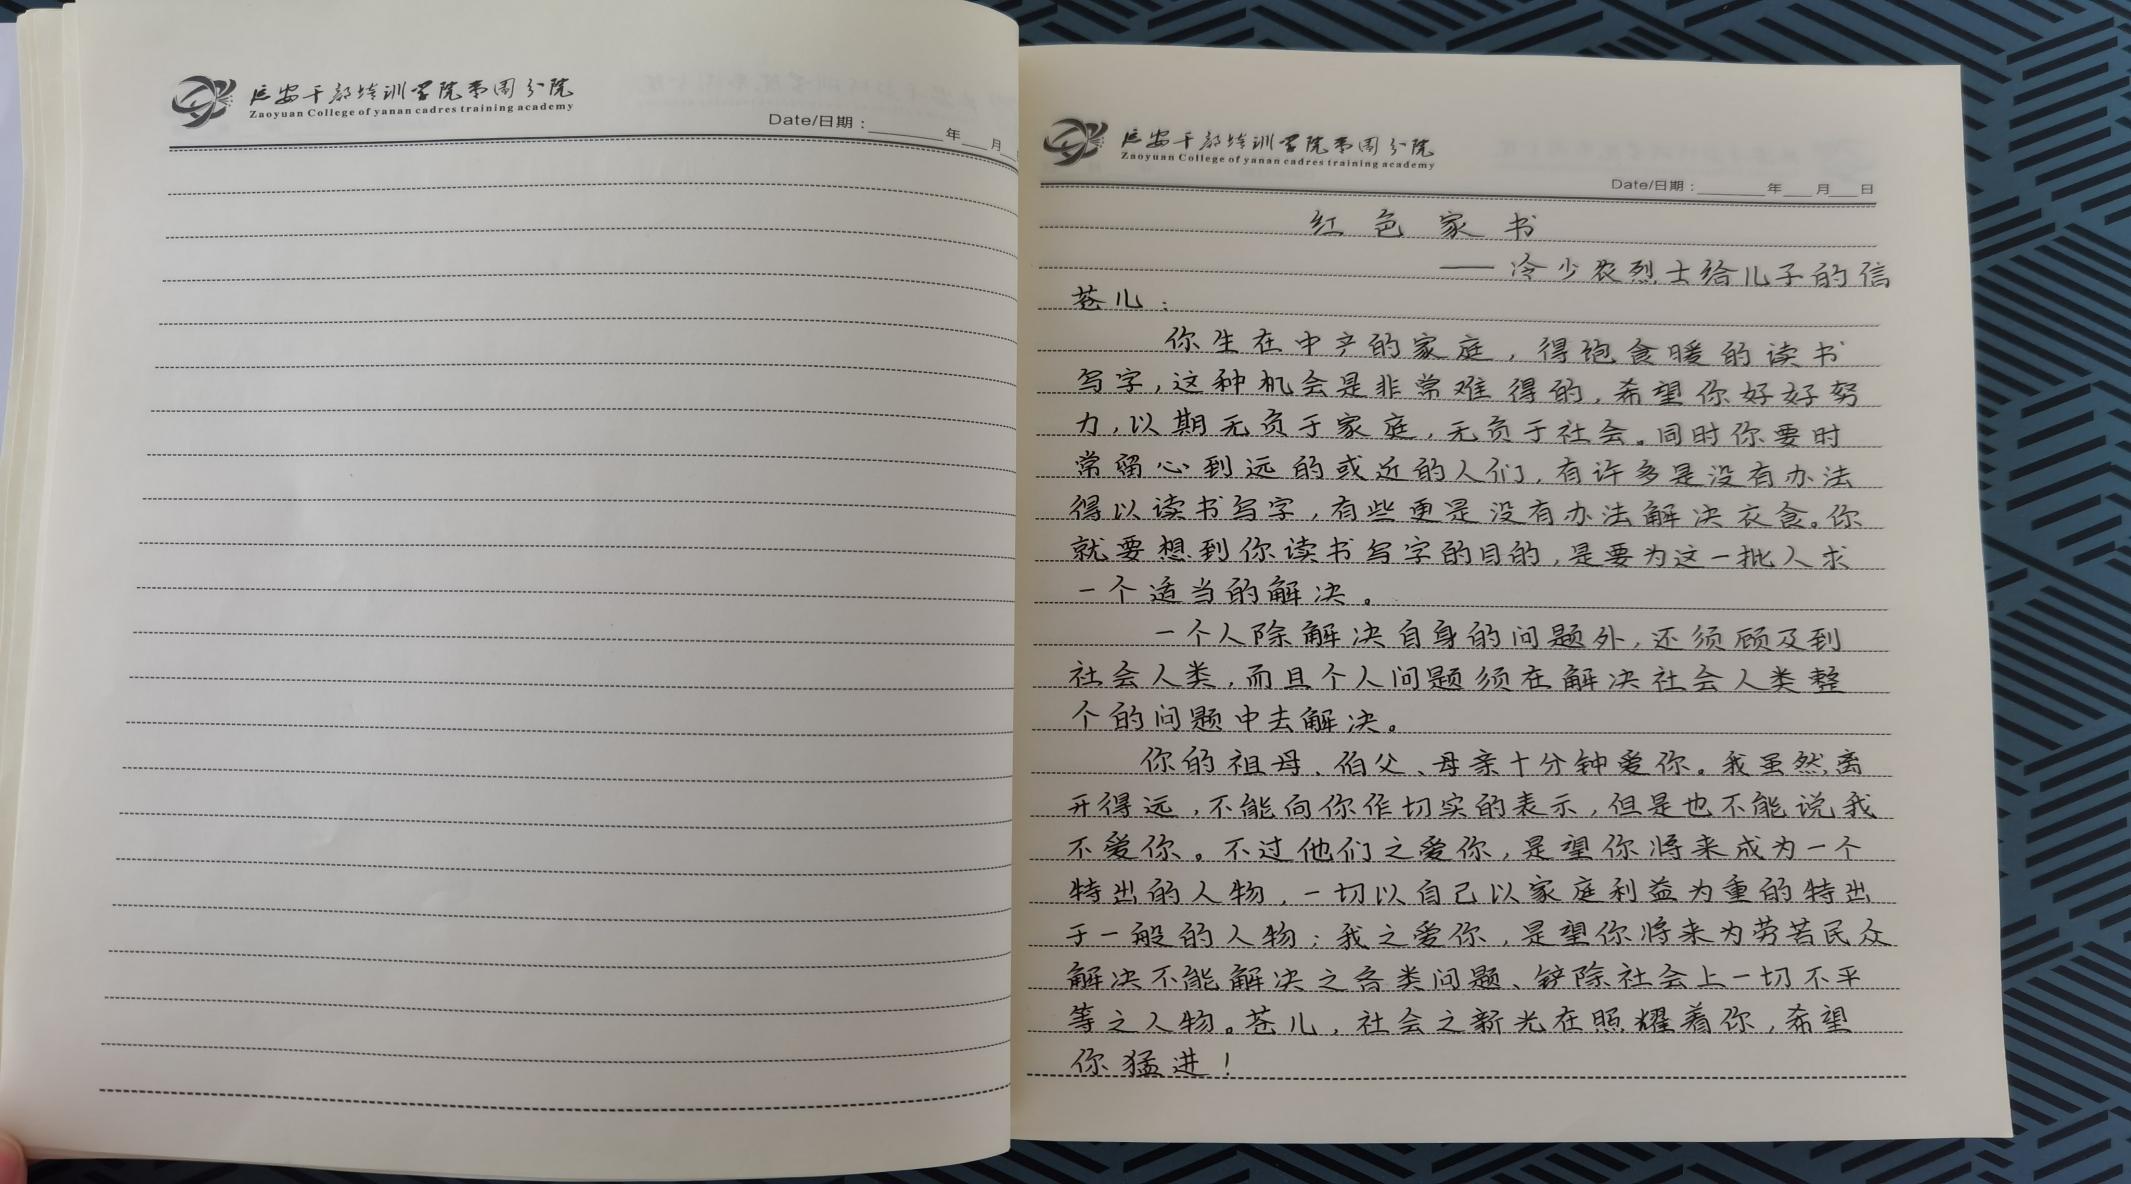 延安干部培训学院枣园分院
Zaoyuan College of yanan cadres training academy
Date/日期：____年__月
延安干部培训学院枣园分院
Zaoyuan College of yanan cadres training academy
Date/日期：____年__月__日
红色家书
——冷少农烈士给儿子的信
苍儿：
你生在中产的家庭，得饱食暖的读书
写字，这种机会是非常难得的，希望你好好努
力，以期无负于家庭，无负于社会。同时你要时
常留心到远的或近的人们，有许多是没有办法
得以读书写字，有些更是没有办法解决衣食。你
就要想到你读书写字的目的，是要为这一批人求
一个适当的解决。
一个人除解决自身的问题外，还须顾及到
社会人类，而且个人问题须在解决社会人类整
个的问题中去解决。
你的祖母、伯父、母亲十分钟爱你。我虽然离
开得远，不能向你作切实的表示，但是也不能说我
不爱你。不过他们之爱你，是望你将来成为一个
特出的人物，一切以自己以家庭利益为重的特出
于一般的人物；我之爱你，是望你将来为劳苦民众
解决不能解决之各类问题、铲除社会上一切不平
等之人物。苍儿，社会之新光在照耀着你，希望
你猛进！